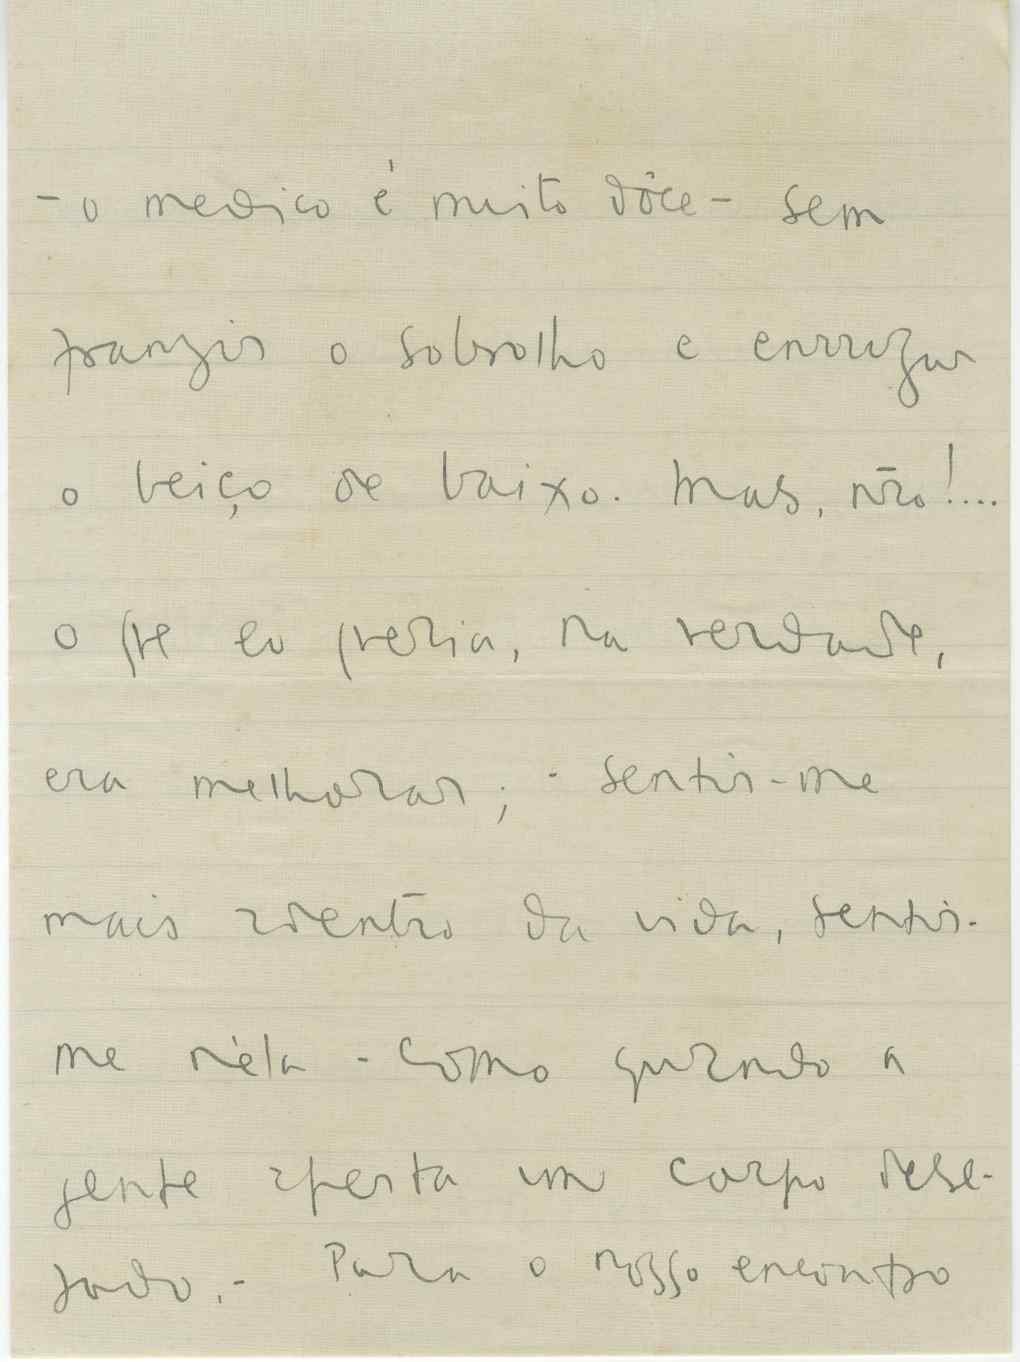 - o medico é muito dôce - sem
franzir o sobrolho e enrrugar
o beiço de baixo. Mas, não!....
O que eu queria, na verdade,
era melhorar; - sentir-me
mais adentro da vida, sentir-
me nela - como quando a
gente aperta um corpo dese-
jado. - Para o nosso encontro